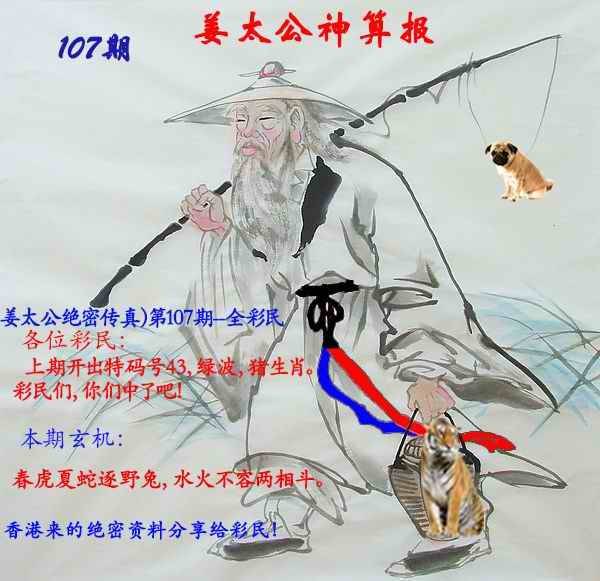 姜太公神算报
107期
姜太公绝密传真)第107期--全彩民
各位彩民:
上期开出特码号43,绿波,猪生肖。
彩民们,你们中了吧!
本期玄机:
春虎夏蛇逐野兔,水火不容两相斗。
香港来的绝密资料分享给彩民!